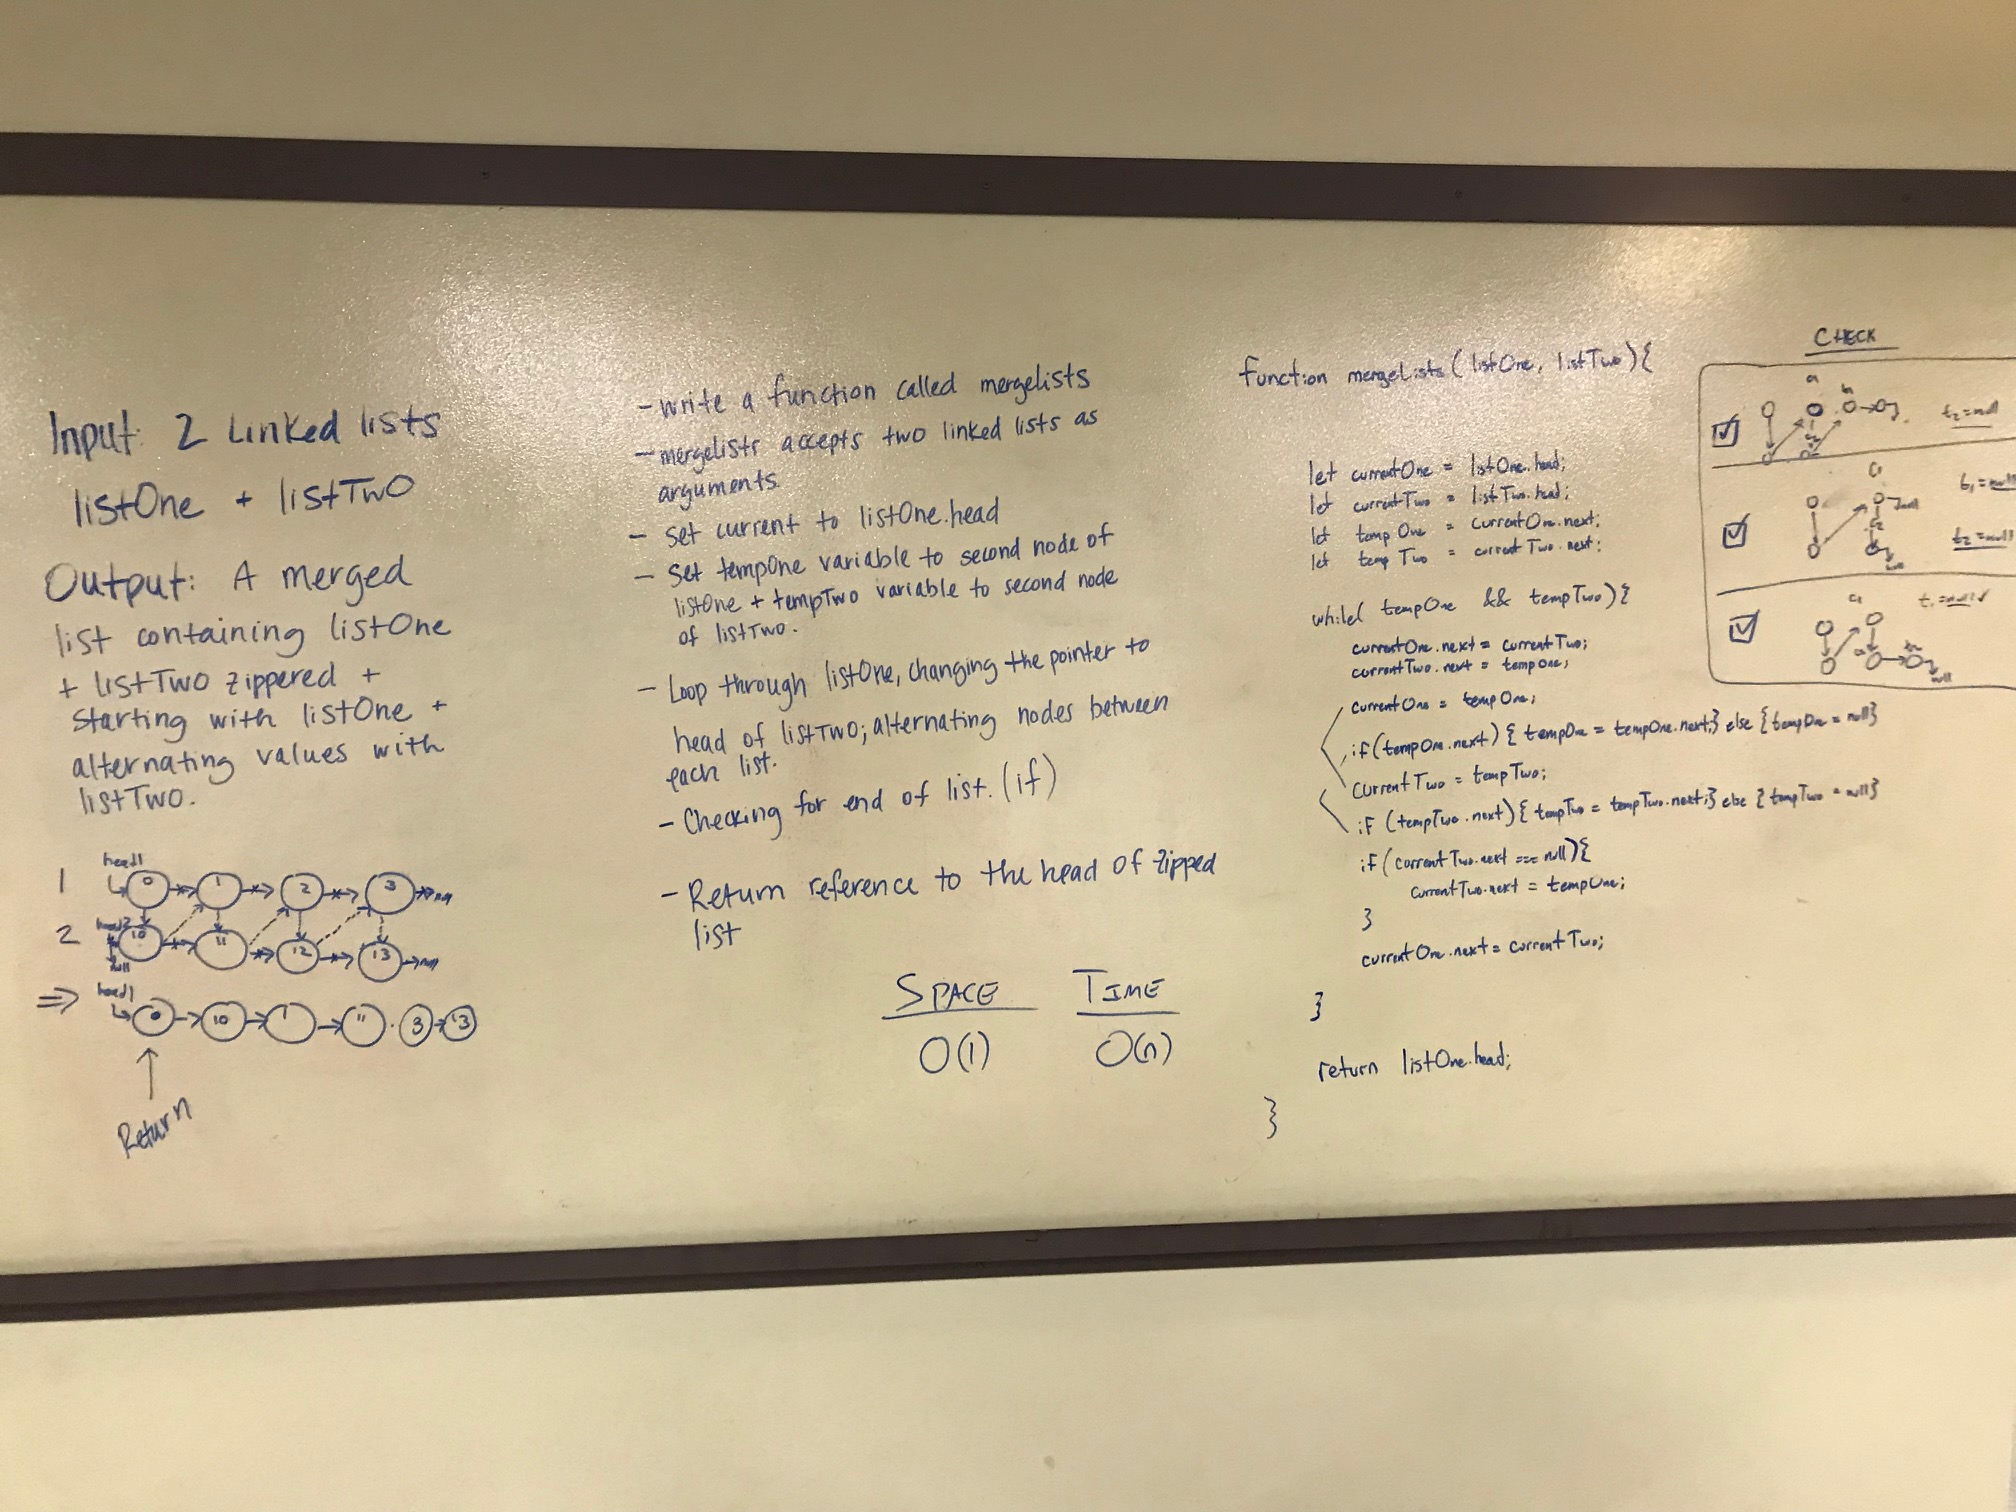 Input: 2 Linked lists
listOne + listTwo
Output: A merged
list containing listOne
+ listTwo zippered +
starting with listOne +
alternating values with
listTwo.
head1
1 0 1 2 3
head2
2 10 11 12 13
null
head1
=> 0 10 1 11 3 13
Return
- Write a function called mergelists
- mergelists accepts two linked lists as
arguments.
- Set current to listOne.head
- Set tempOne variable to second node of
listOne + tempTwo variable to second node
of listTwo.
- Loop through listOne, changing the pointer to
head of listTwo; alternating nodes between
each list.
- Checking for end of list. (if)
- Return reference to the head of zipped
list
SPACE TIME
O(1) O(n)
function mergeLists (listOne, listTwo){
let currentOne = listOne.head;
let currentTwo = listTwo.head;
let tempOne = currentOne.next;
let tempTwo = currentTwo.next;
while( tempOne && tempTwo){
currentOne.next = currentTwo;
currentTwo.next = tempOne;
currentOne = tempOne;
if(tempOne.next) { tempOne = tempOne.next;} else {tempOne = null}
currentTwo = tempTwo;
if (tempTwo.next) { tempTwo = tempTwo.next;} else {tempTwo = null}
if (currentTwo.next === null){
currentTwo.next = tempOne;
}
currentOne.next = currentTwo;
}
return listOne.head;
}
CHECK
t2 = null
t1 = null
t2 = null
t1 = null